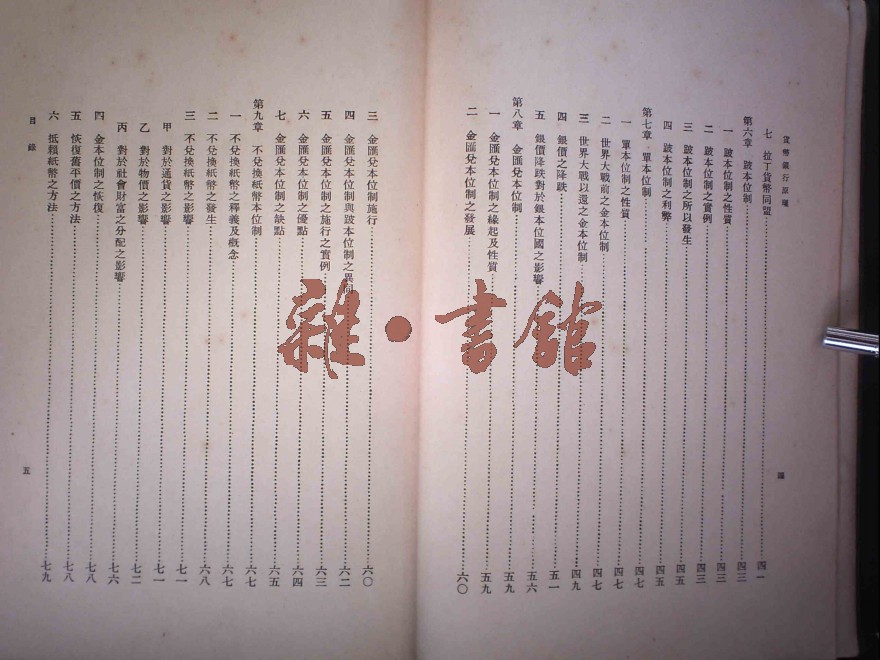 貨幣銀行原理
四
七 拉丁貨幣同盟……四一
第六章 跛本位制……四三
一 跛本位制之性質……四三
二 跛本位制之實例……四三
三 跛本位制之所以發生……四五
四 跛本位制之利弊……四五
第七章 單本位制……四七
一 單本位制之性質……四七
二 世界大戰前之金本位制……四七
三 世界大戰以還之金本位制……四九
四 銀價之降跌……五一
五 銀價降跌對於銀本位國之影響……五六
第八章 金匯兌本位制……五九
一 金匯兌本位制之緣起及性質……五九
二 金匯兌本位制之發展……六〇
三 金匯兌本位制施行……六〇
四 金匯兌本位制與跛本位制之異同……六二
五 金匯兌本位制之施行之實例……六三
六 金匯兌本位制之優點……六四
七 金匯兌本位制之缺點……六五
第九章 不兌換紙幣本位制……六七
一 不兌換紙幣之釋義及概念……六七
二 不兌換紙幣之發生……六八
三 不兌換紙幣之影響……七一
甲 對於通貨之影響……七一
乙 對於物價之影響……七二
丙 對於社會財富之分配之影響……七六
四 金本位制之恢復……七八
五 恢復舊平價之方法……七八
六 抵糧紙幣之方法……七九
目錄
五
雜·書館